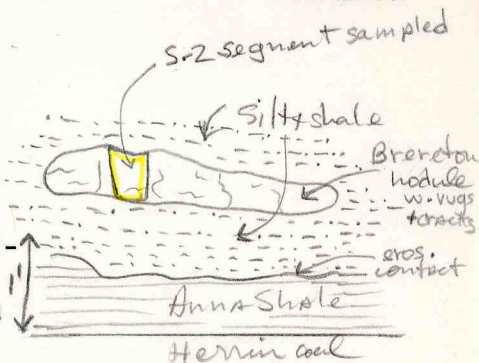 S-2 segment sampled
Silty shale
Brereton
nodule
w. vugs
+ cracks
eros.
contact
1'
Anna Shale
Herrin coal